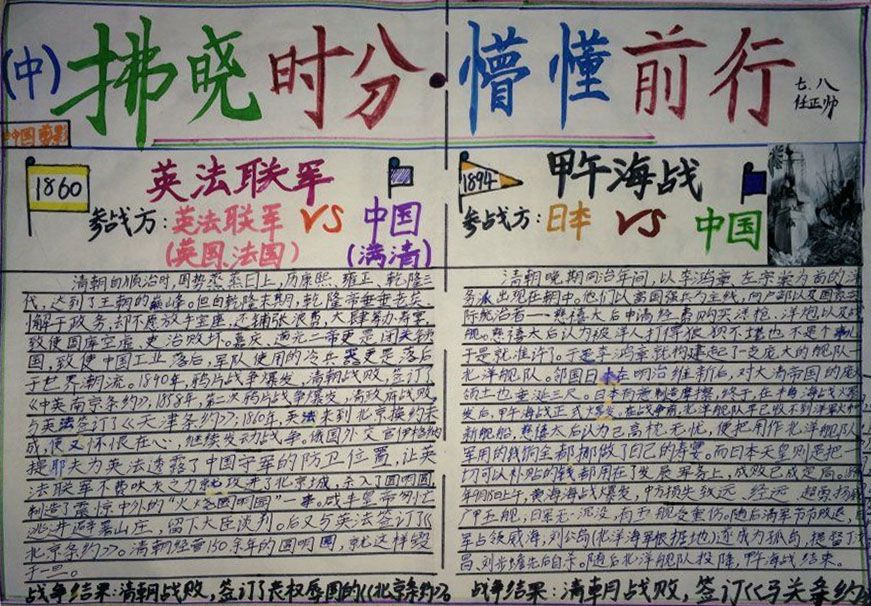 (中)拂晓时分·懵懂前行
七、八
任正帅
中国剪影
1860
英法联军
参战方:英法联军 VS 中国
(英国、法国) (满清)
清朝自顺治时,国势蒸蒸日上,历康熙、雍正、乾隆三
代,达到了王朝的巅峰。但自乾隆末期,乾隆帝垂垂老矣,
懈于政务,却不愿放弃宝座,还铺张浪费,大肆举办寿宴,
致使国库空虚,吏治败坏。嘉庆、道光二帝更是闭关锁
国,致使中国工业落后,军队使用的冷兵器更是落后
于世界潮流。1840年,鸦片战争爆发,清朝战败,签订了
《中英南京条约》;1858年,第二次鸦片战争爆发,清政府战败,
与英法签订了《天津条约》;1860年,英法来到北京换约未
成,便又怀恨在心,继续发动战争。俄国外交官伊格纳
提耶夫为英法透露了中国守军的防卫位置,让英
法联军不费吹灰之力就攻进了北京城,杀入了圆明园,
制造了震惊中外的“火烧圆明园”一事。咸丰皇帝匆忙
逃进避暑山庄,留下大臣谈判。后又与英法签订了《
北京条约》。清朝经营150余年的圆明园,就这样毁
于一旦。
战争结果:清朝战败,签订了丧权辱国的《北京条约》。
1894
甲午海战
参战方:日本 VS 中国
清朝晚期同治年间,以李鸿章、左宗棠为首的洋
务派出现在朝中。他们以富国强兵为主线,向户部以及国家实
际统治者——慈禧太后申请经费购买洋枪、洋炮以及战
舰。慈禧太后认为被洋人打得狼狈不堪也不是个事儿,
于是就准许了。于是李鸿章就构建起了支庞大的舰队——
北洋舰队。邻国日本在明治维新后,对大清帝国的庞大
领土也垂涎三尺。日本
发后,甲午海战正式爆发。在战争前,北洋舰队早已收不到洋军火和
新舰船,慈禧太后认为已高枕无忧,便把用作北洋舰队
军用的钱财全都挪做了自己的寿宴。而日本天皇则是把一
切可以补贴的钱都用在了发展军务上,成败已成定局。
年9月17日上午,黄海海战爆发,中方损失致远、经远、超勇、扬威、
广甲五舰,日军无一沉没,有五舰受重伤。随后清军节节败退,日
军占领威海,刘公岛(北洋海军根据地)亦成为孤岛,提督丁
昌、刘步蟾先后自杀。随后北洋舰队投降,甲午海战结束。
战争结果:清朝战败,签订《马关条约》。